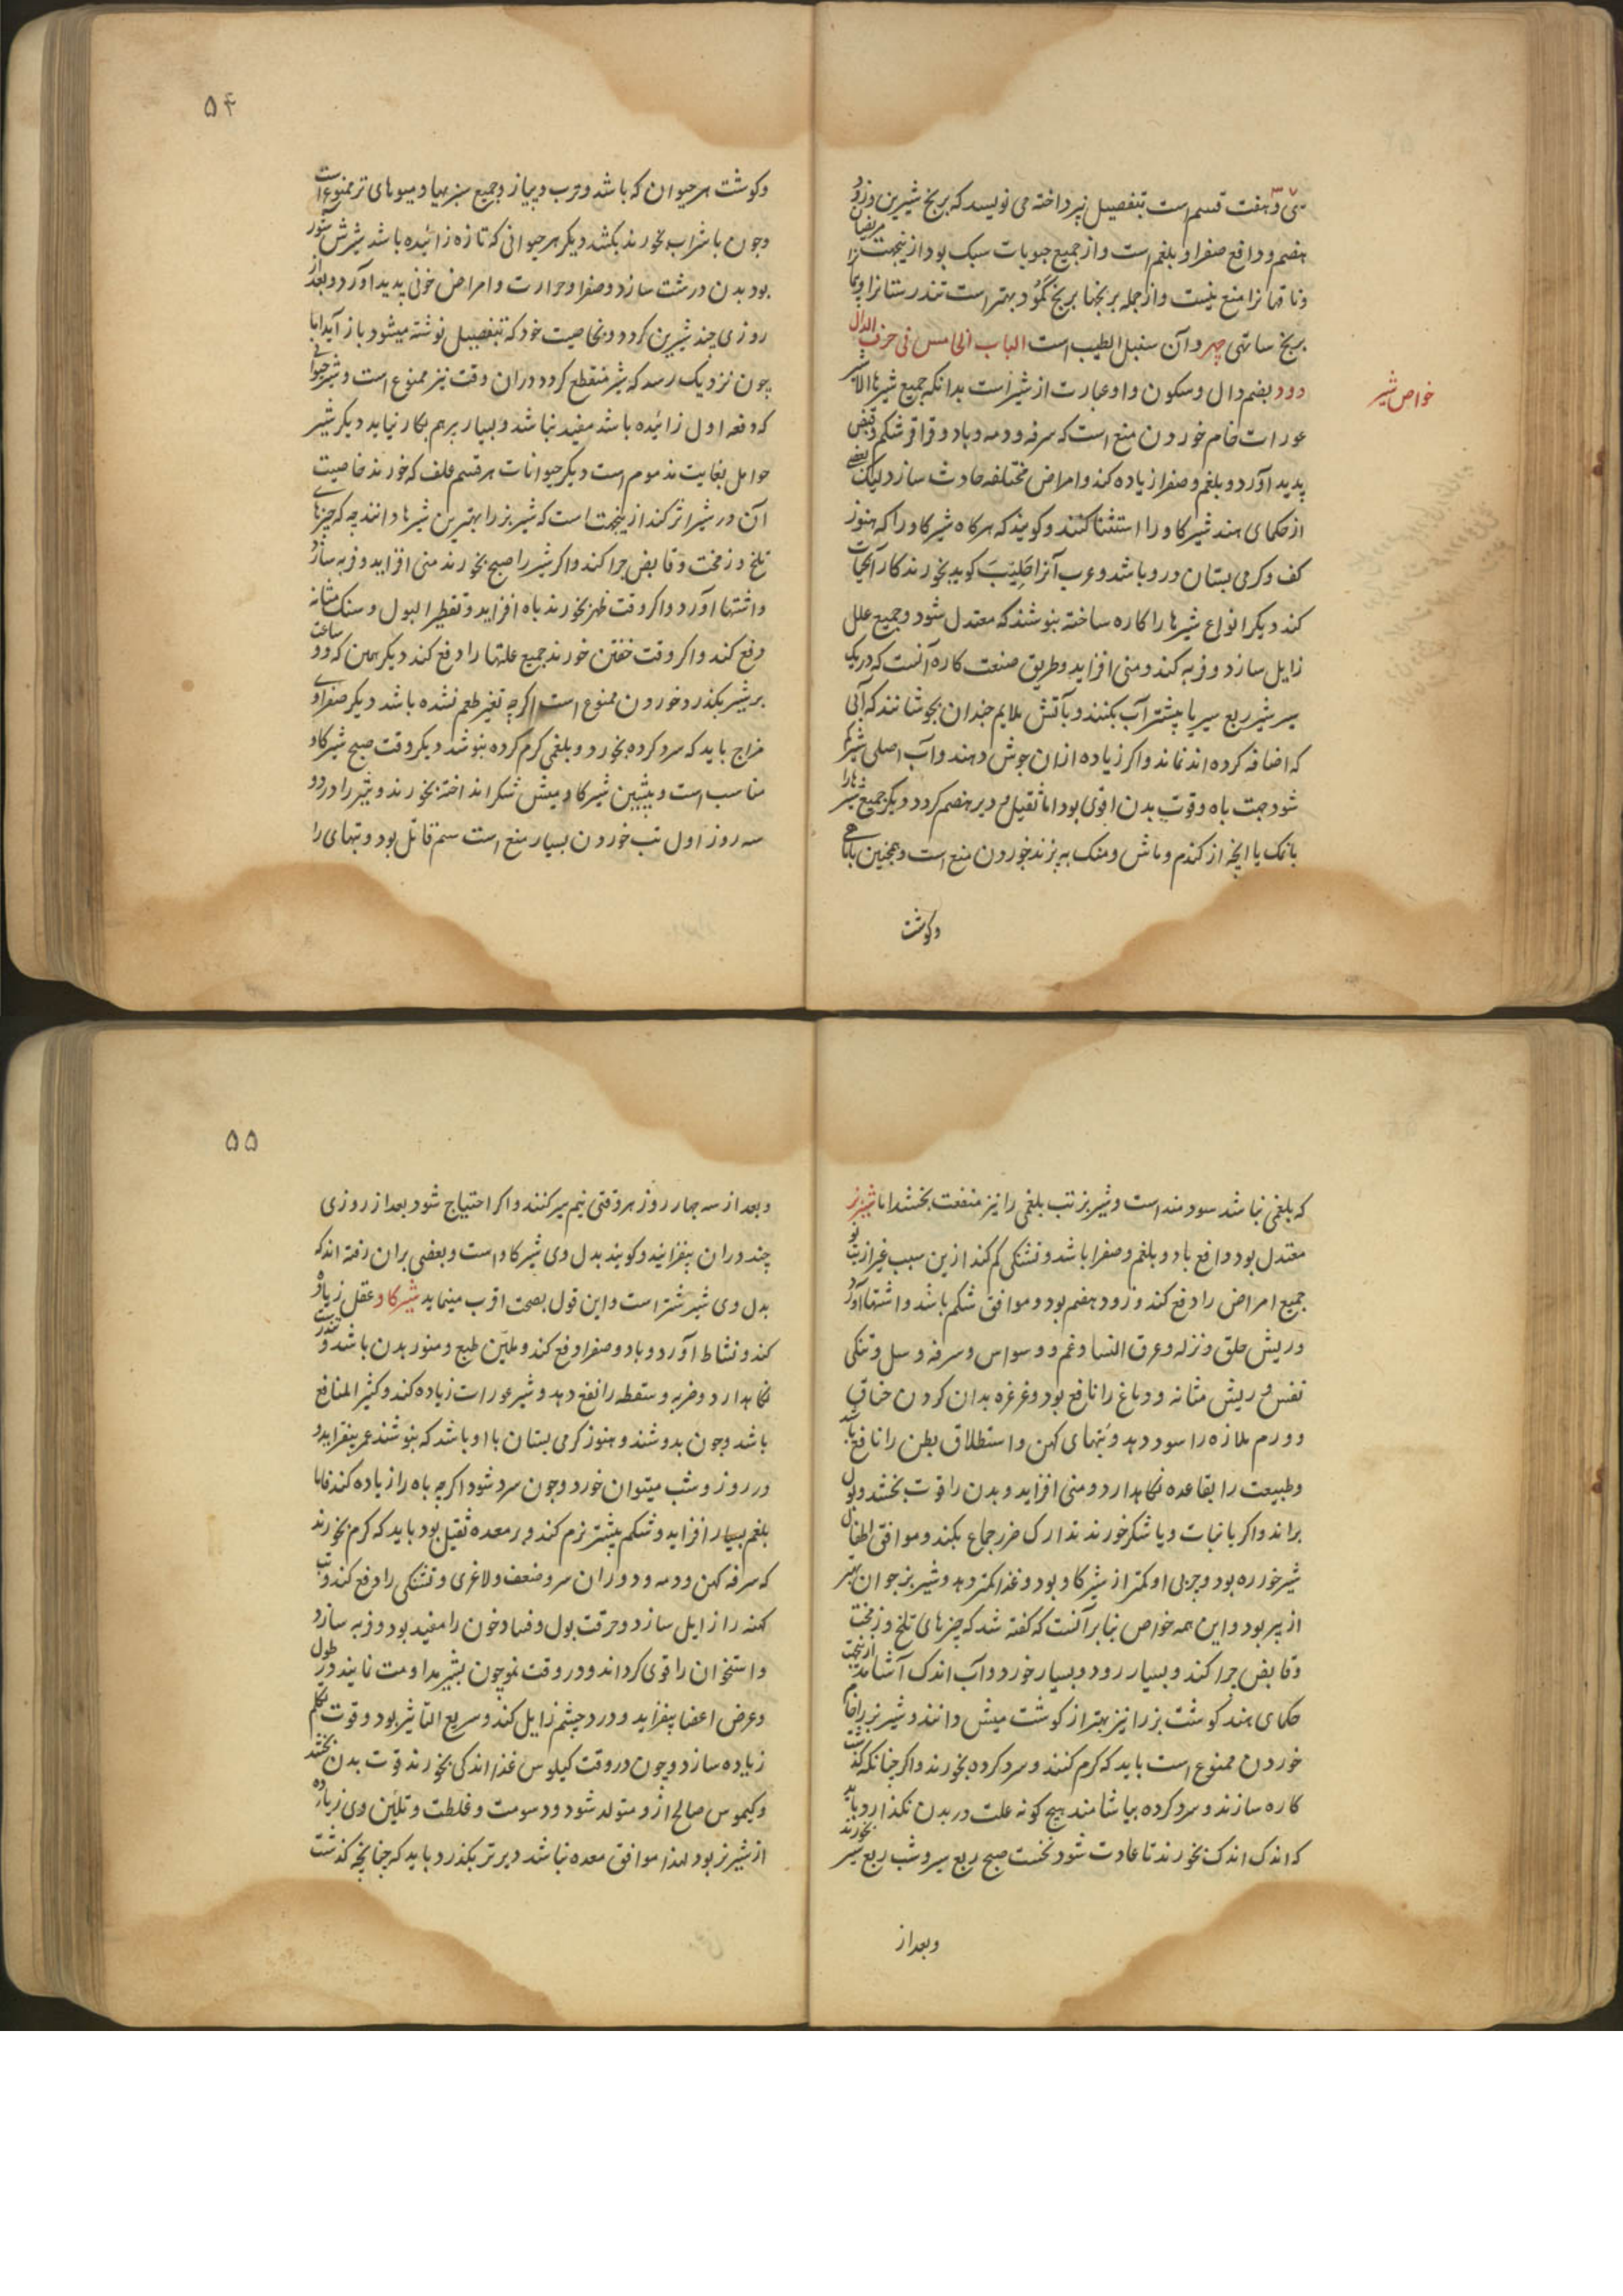 سی و هفت قسم است بتفصیل نپرداخته می نویسد که برنج شیرین و زود
هضم و دافع صفرا و بلغم است و از جمیع حبوبات سبک بود ازینجهت مریضان
و ناقهانرا منع نیست و از جمله برنجها برنج کمود بهتر است تندرستانرا و
برنج ساتهی چهر و آن سنبل الطیب است الباب الخامس فی حرف الدال
خواص شیر
دود بضم دال و سکون واو عبارت از شیر است بدانکه جمیع شیرها الا شیر
عورات خام خوردن منع است که سرفه و دمه و باد و قراقر شکم و قبض
پدید آورد و بلغم و صفرا زیاده کند و امراض مختلفه حادث سازد لیکن بعضی
از حکمای هند شیر کاو را استثنا کنند و کویند که هر کاه شیر کاو را که هنوز
کف و کرمی پستان درو باشد و عرب آنرا حلیب کوید بخورند کار آبحیات
کند دیکر انواع شیرها را کاره ساخته بنوشند که معتدل شود و جمیع علل
زایل سازد و فربه کند و منی افزاید و طریق صنعت کاره آنست که در یک
سیر شیر ربع سیر یا بیشتر آب بکنند و بآتش ملایم چندان بجوشانند که آبی
که اضافه کرده اند نماند و اکر زیاده ازان جوش دهند و آب اصلی شیر کم
شود جهت باه و قوت بدن اقوی بود اما ثقیل و دیر هضم کردد دیکر جمیع شیرها را
بانمک یا آنچه از کندم و ماش و منک بپزند خوردن منع است و همچنین با ماهی
وکوشت
۵۴
وکوشت هر حیوان که باشد و ترب و پیاز و جمیع سبزیها و میوهای تر ممنوع است
و چون با شراب بخورند بکشد دیکر هر حیوانی که تازه زائیده باشد شیرش شور
بود بدن درشت سازد و صفرا و حرارت و امراض خونی پدید آورد و بعد از
روزی چند شیرین کردد و بخاصیت خود که بتفصیل نوشته میشود باز آید اما
چون نزدیک رسد که شیر منقطع کردد دران وقت نیز ممنوع است و شیر حیوانی
که دفعه اول زائیده باشد مفید نباشد و بسیار برهم بکار نیاید دیکر شیر
حوامل بغایت مذموم است دیکر حیوانات هر قسم علف که خورند خاصیت
آن در شیر اثر کند ازینجهت است که شیر بز را بهترین شیرها دانند چه که چیزهای
تلخ و زمخت و قابض چرا کند و اکر شیر را صبح بخورند منی افزاید و فربه سازد
و اشتها آورد و اکر وقت ظهر بخورند باه افزاید و تقطیر البول و سنک مثانه
دفع کند و اکر وقت خفتن خورند جمیع علتها را دفع کند دیکر همین که دو ساعت
بر شیر بکذرد خوردن ممنوع است اکرچه تغیر طعم نشده باشد دیکر صفراوی
مزاج باید که سرد کرده بخورد و بلغمی کرم کرده بنوشد دیکر وقت صبح شیر کاو
مناسب است و پیشین شیر کاومیش شکر انداخته بخورند و شیر را در دو
سه روز اول تب خوردن بسیار منع است سم قاتل بود و تبهای را
که بلغمی نباشد سودمند است و شیر بز تب بلغمی را نیز منفعت بخشد اما شیر بز
معتدل بود دافع باد و بلغم و صفرا باشد و تشنکی کم کند ازین سبب غیر از تب نو
جمیع امراض را دفع کند و زود هضم بود و موافق شکم باشد و اشتها آورد
و ریش حلق و نزله و عرق النسا و غم و وسواس و سرفه و سل و تنکی
نفس و ریش مثانه و دماغ را نافع بود و غرغره بدان کردن خناق
و ورم ملازه را سود دهد و تبهای کهن و استطلاق بطن را نافع باشد
و طبیعت را بقاعده نکاهدارد و منی افزاید و بدن را قوت بخشد و بول
براند و اکر با نبات و یا شکر خورند تدارک ضرر جماع بکند و موافق اطفال
شیر خوره بود و چربی او کمتر از شیر کاو بود و غذا کمتر دهد و شیر بز جوان بهتر
از پیر بود و این همه خواص بنابر آنست که کفته شد که چیزهای تلخ و زمخت
و قابض چرا کند و بسیار رود و بسیار خورد و آب اندک آشامد ازینجهت
حکمای هند کوشت بز را نیز بهتر از کوشت میش دانند و شیر بز را خام
خوردن ممنوع است باید که کرم کنند و سرد کرده بخورند و اکر چنانکه کذشت
کاره سازند و سرد کرده بیاشامند هیچ کونه علت در بدن نکذارد باید
که اندک اندک بخورند تا عادت شود نخست صبح ربع سیر و شب ربع سیر بخورند
وبعد از
۵۵
وبعد از سه چهار روز هر وقتی نیم سیر کنند و اکر احتیاج شود بعد از روزی
چند دران بیفزایند و کویند بدل وی شیر کاو است و بعضی بران رفته اند که
بدل وی شیر شتر است و این قول بصحت اقرب مینماید شیر کاو عقل زیاده
کند و نشاط آورد و باد و صفرا دفع کند و ملین طبع و منور بدن باشد و تندرستی
نکاهدارد و ضربه و سقطه را نفع دهد و شیر عورات زیاده کند و کثیر المنافع
باشد و چون بدوشند و هنوز کرمی پستان با او باشد که بنوشند عمر بیفزاید و
در روز و شب میتوان خورد و چون سرد شود اکرچه باه را زیاده کند فاما
بلغم بسیار افزاید و شکم بیشتر نرم کند و در معده ثقیل بود باید که کرم بخورند
که سرفه کهن و دمه و دوران سر و ضعف و لاغری و تشنکی را دفع کند و تب
کهنه را زایل سازد و حرقت بول و فساد خون را مفید بود و فربه سازد
و استخوان را قوی کرداند و در وقت نمو چون بشیر مداومت نمایند در طول
و عرض اعضا بیفزاید و درد چشم زایل کند و سریع التاثیر بود و قوت تکلم
زیاده سازد و چون در وقت کیلوس غذا اندکی بخورند قوت بدن بخشد
و کیموس صالح ازو متولد شود و دسومت و غلظت و تلئین وی زیاده
از شیر بز بود لهذا موافق معده نباشد دیرتر بکذرد باید که چنانچه کذشت